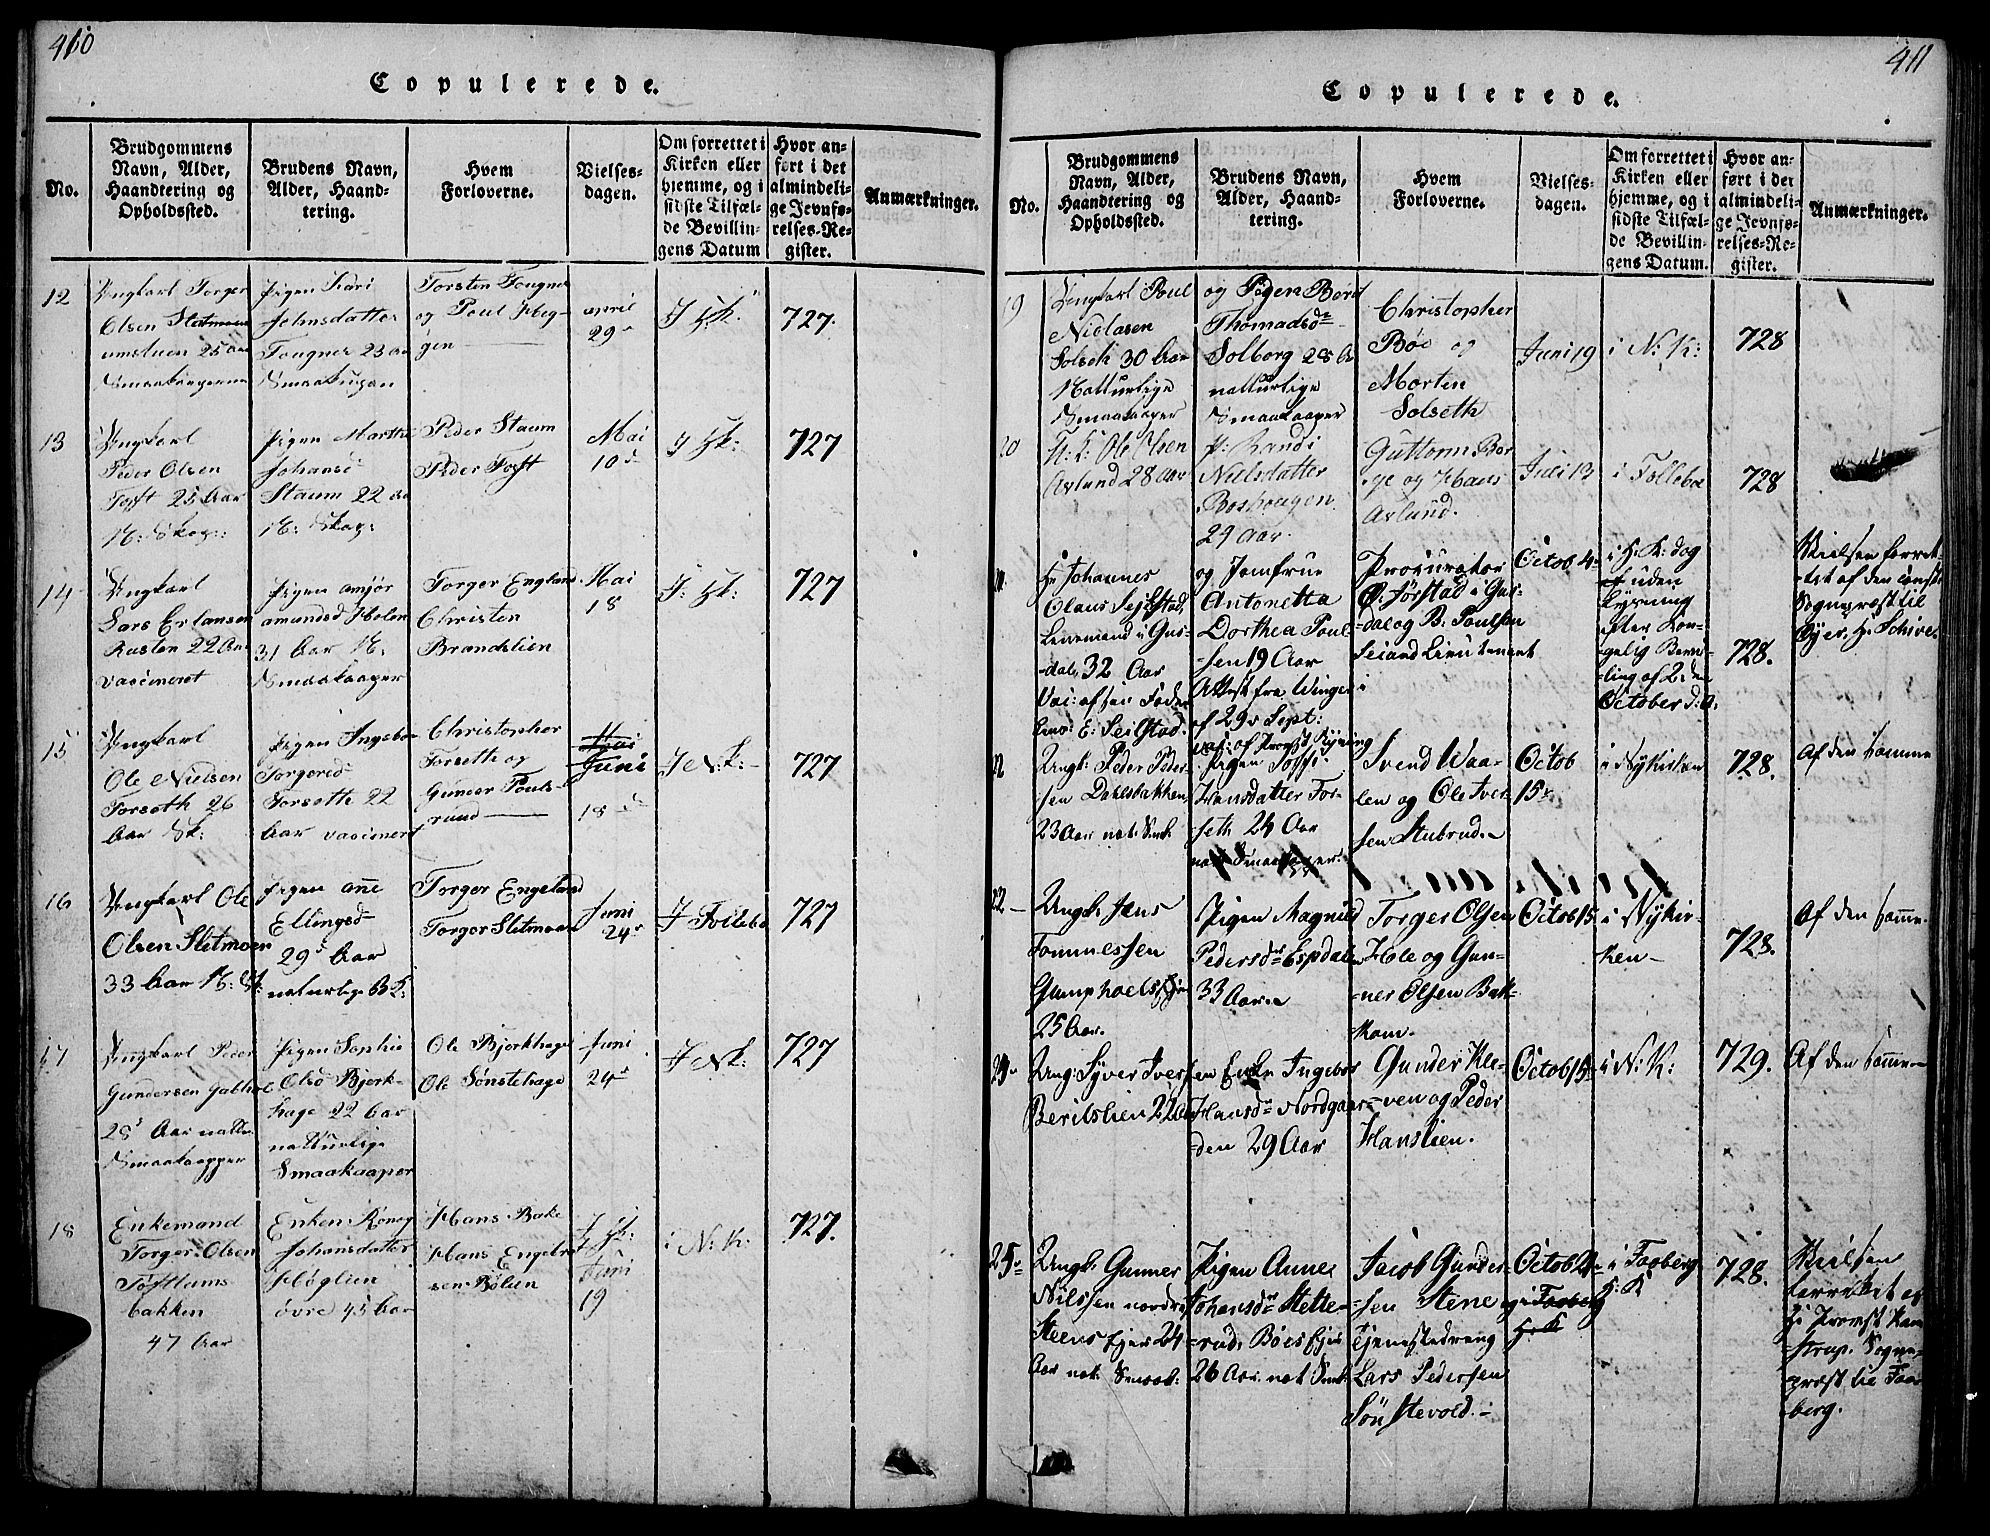 410
Copulerede.
No.
Brudgommens
Navn, Alder,
Haandtering og
Opholdssted.
Brudens Navn,
Alder, Haand-
tering.
Hvem
Forloverne.
Vielses-
dagen.
Om forrettet i
Kirken eller
hjemme, og i
sidste Tilfæl-
de Bevillin-
gens Datum
Hvor an-
ført i det
almindeli-
ge Jevnfø-
relses-Re-
gister.
Anmærkninger.
12
Ungkarl Torger
Olsen
25 Aar
Pigen Kari
Johnsdatter
Fougner 23 aar
Torsten Fougner
og Poul Heg-
gen
april
29
727.
13
Ungkarl
Peder Olsen
Tofft 25 Aar
N: Skog:
Pigen Marthe
Johansd
Staum 22 aar
N: Skog:
Peder Staum
Peder Tofft
Mai
10
727
14
Ungkarl
Lars Erlansen
Rusten 22 Aar
vaccineret
Pigen
amundsd Holen
31 Aar N.
Smaakaaper
Torger England
Christen
Brandslien
Mai
18
727
15
Ungkarl
Ole Nielsen
Forseth 26
Aar
Pigen Ingebor
Torgersd
Forseth 22
Aar vaccinert
Christopher
Forseth og
Guneer Pouls-
rund
Mai
Juni
18
I N: k:
727
16
Ungkarl Ole
Olsen Sletmoen
33 Aar N:
Pigen Ane
Ellingsd
29 Aar
naturlige B K:
Torger Engeland
Torger Sletmoen
Juni
24
727
17
Ungkarl Peder
Gundersen
28 Aar natu
Smaakaapper
Pigen Sophie
Olsd Bjork-
hage 22 Aar
natturlige
Smaakaaper
Ole Bjorkhage
Ole Sønstehage
Juni
24
727
18
Enkemand
Torger Olsen
bakken
47 Aar
Enken
Johansdatter
Høglien
øvre 45 Aar
Hans Bake
Hans Engebre
sen Bølien
Juni
19
i N: K:
727.
411
Copulerede.
No.
Brudgommens
Navn, Alder,
Haandtering og
Opholdssted.
Brudens Navn,
Alder, Haand-
tering.
Hvem
Forloverne.
Vielses-
dagen.
Om forrettet i
Kirken eller
hjemme, og i
sidste Tilfæl-
de Bevillin-
gens Datum.
Hvor an-
ført i det
almindeli-
ge Jevnfø-
relses-Re-
gister.
Anmærkninger.
19
Ungkarl Poul
Niclasen
30 Aar
Natturlige
Smaakaaper
og Pigen Børet
Thomasd
Solborg 28 A
natturlige
Smaakaaper
Christopher
Bøe og
Morten
Solseth
Juni 19
i N: K:
728
20
Ole Olsen
Avlund 28 Aar
P: Randi
Nielsdatter
29 Aar.
Guttorm Bor
ge og Hans
Avlund.
Juli 13
i Follebo
728
Hr Johannes
Olaus Seilstad,
Lensmand i Gus-
dal, 32 Aar
E: Seilstad.
og Jomfrue
Antonetta
Dorthea Poul-
sen 19 Aar
Attest fra Winger
af 29 Sept:
af Provst Ryning
Procurator
Ø. Jørstad i Gus-
dal og B. Poulsen
Seiond Lieutenant
Octob 4
i H. K: dog
uden
Lysning
efter Kon-
gelig Bevil-
ling af 2den
October d: A:
728.
Vielsen forret-
tet af den const:
Sognepræst til
Øyer, Hr Schive.
22
Ungk: Peder Peder-
sen Dahlsbakken,
23 Aar nat: Smk
Pigen
Hansdatter For-
seth 24 Aar
Svend Waa-
len og Ole Iver-
sen Stubrud.
Octob
15
i Nykirken
728.
Af den samme
22
Ungk: Jens
Tommessen
25 Aar.
Pigen Magnild
Pedersd Espedalen
33 Aar
Torger Olsen
Hole og Gun-
ner Olsen Bak-
kom.
Octob 15
i Nykir-
ken
728.
Af den samme.
Ung: Syver Ivers
Beritslien 22
en Enke Ingebor
Hansd Nordgaar-
den 29 Aar
Gunder Kle-
ven og Peder
Hanslien.
Octob 15
i N: K:
729.
Af den samme
25
Ungk: Gunner
Nilssen nordre
Steens Ejer 24
Aar nat: Smaak:
Pigen Anne
Johansd Stette-
rud, Bøes Ejer
26 Aar nat Smk
Jacob Gunder-
sen Stene og
Tjenestedreng
Lars Pedersen
Sønstevold.
Octob
i Faaberg
H: K
i Faaberg
H: K
728.
Vielsen
forrettet af
Hr Provst Kam
strup, Sogne-
præst til Faa-
berg.